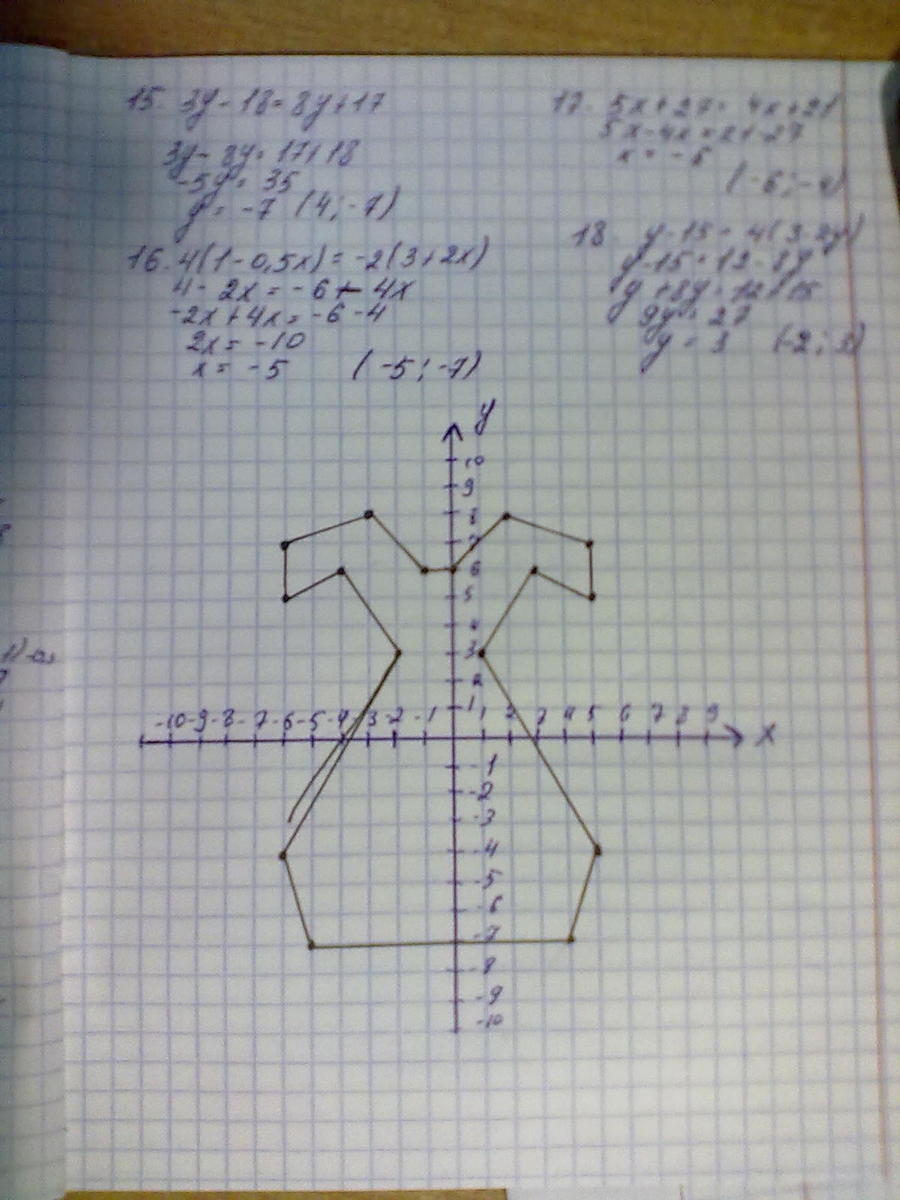 15. 3y - 18 = 8y + 17
3y - 8y = 17 + 18
-5y = 35
y = -7 (4; -7)
16. 4(1 - 0,5x) = -2(3 + 2x)
4 - 2x = -6 - 4x
-2x + 4x = -6 - 4
2x = -10
x = -5 (-5; -7)
17. 5x + 27 = 4x + 21
5x - 4x = 21 - 27
x = -6
(-6; -4)
18. y - 15 = 4(3 - 2y)
y - 15 = 12 - 8y
y + 8y = 12 + 15
9y = 27
y = 3 (-2; 3)
y
10
9
8
7
6
5
4
3
2
1
-10 -9 -8 -7 -6 -5 -4 -3 -2 -1 1 2 3 4 5 6 7 8 9 x
-1
-2
-3
-4
-5
-6
-7
-8
-9
-10